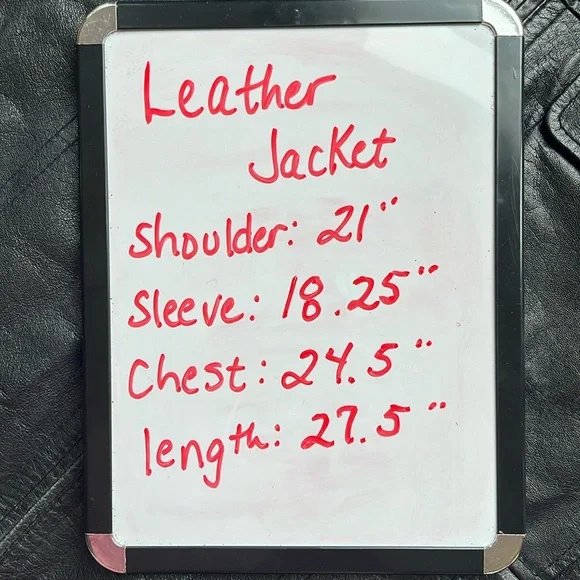 Leather
Jacket
Shoulder: 21"
Sleeve: 18.25"
Chest: 24.5"
length: 27.5"